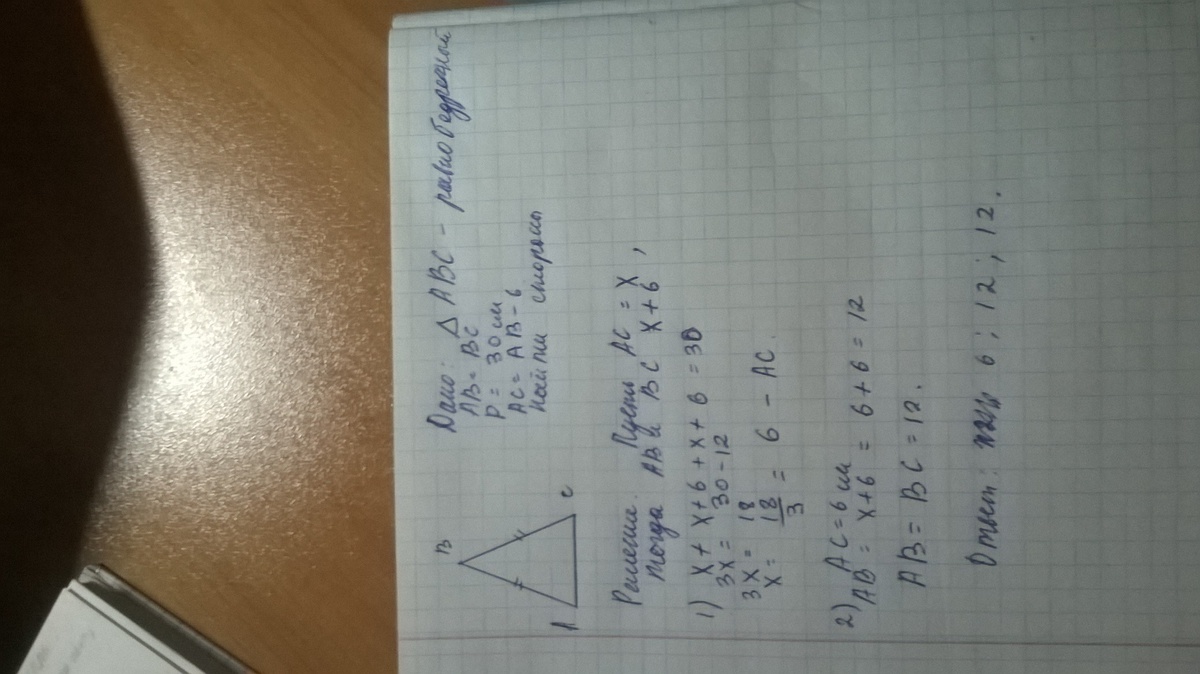 Дано: Δ ABC - равнобедренный
AB = BC
P = 30 см
AC = AB - 6
Найти стороны
B
A
C
Решение. Пусть AC = x,
тогда AB и BC x+6
1) x + x+6 + x + 6 = 30
3x = 30-12
3x = 18
x = 18/3 = 6 - AC.
2) AC = 6 см
AB = x+6 = 6+6 = 12
AB = BC = 12.
Ответ: 6; 12; 12.